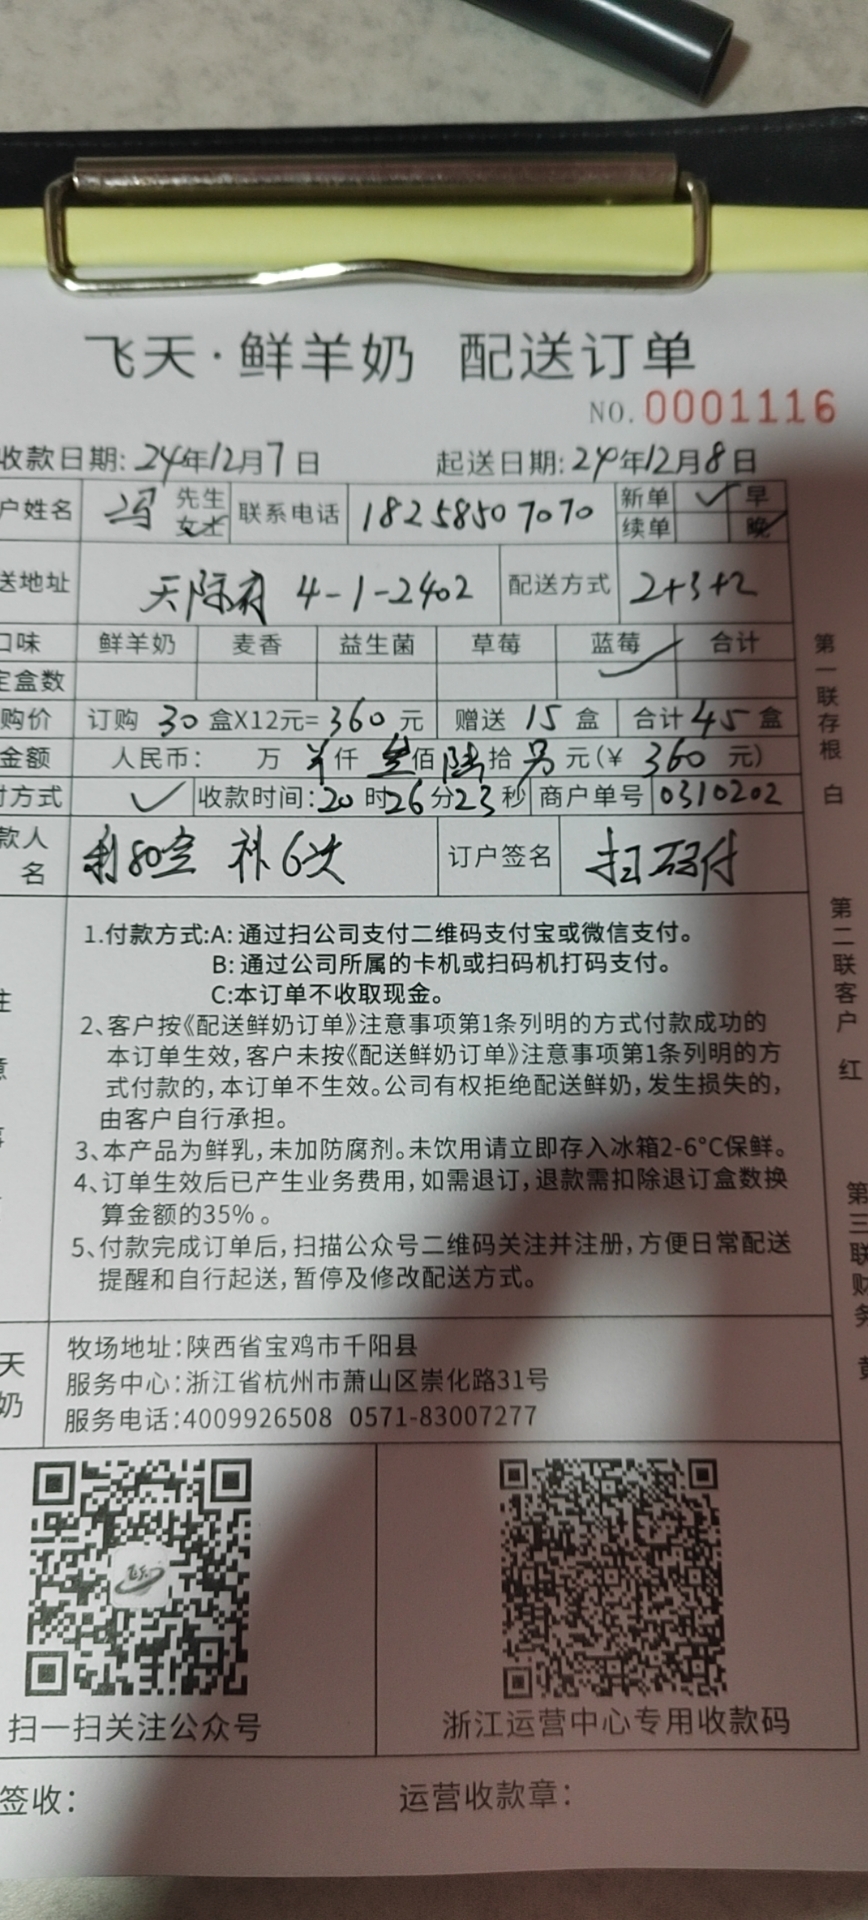 飞天·鲜羊奶 配送订单
NO.0001116
收款日期:24年12月7日 起送日期:24年12月8日
户姓名 冯 先生 女士 联系电话 18258507070 新单 早
续单 晚
送地址 天际府 4-1-2402 配送方式 2+3+2
口味 鲜羊奶 麦香 益生菌 草莓 蓝莓 合计
定盒数
购价 订购 30 盒X12元=360元 赠送 15 盒 合计45盒
金额 人民币: 万 仟 叁佰陆拾 元(¥ 360 元)
付方式 收款时间:20时26分23秒 商户单号 0310202
款人
名 补6次 订户签名 扫码付
1.付款方式:A: 通过扫公司支付二维码支付宝或微信支付。
B: 通过公司所属的卡机或扫码机打码支付。
C:本订单不收取现金。
2、客户按《配送鲜奶订单》注意事项第1条列明的方式付款成功的
本订单生效,客户未按《配送鲜奶订单》注意事项第1条列明的方
式付款的,本订单不生效。公司有权拒绝配送鲜奶,发生损失的,
由客户自行承担。
3、本产品为鲜乳,未加防腐剂。未饮用请立即存入冰箱2-6°C保鲜。
4、订单生效后已产生业务费用,如需退订,退款需扣除退订盒数换
算金额的35%。
5、付款完成订单后,扫描公众号二维码关注并注册,方便日常配送
提醒和自行起送,暂停及修改配送方式。
注
意
事
第一联存根 白
第二联客户 红
第三联财务 黄
天
奶
牧场地址:陕西省宝鸡市千阳县
服务中心:浙江省杭州市萧山区崇化路31号
服务电话:4009926508 0571-83007277
扫一扫关注公众号 浙江运营中心专用收款码
签收: 运营收款章: